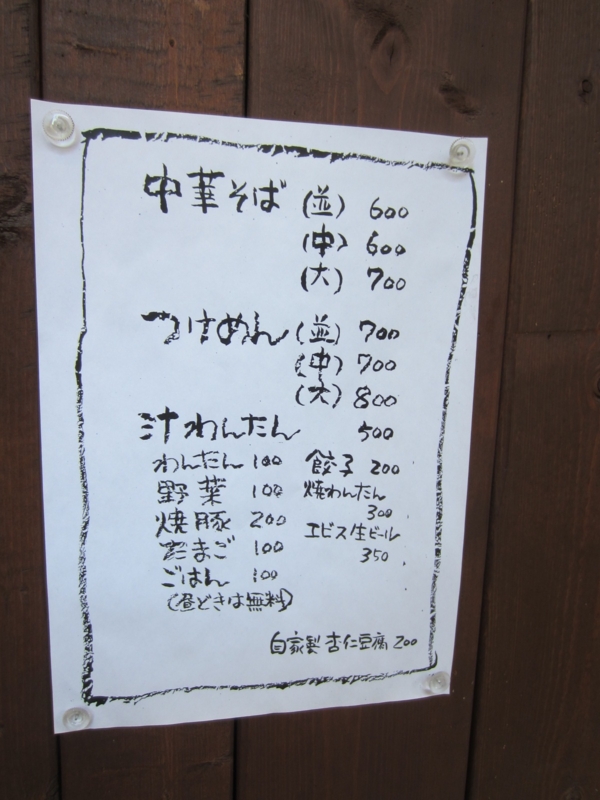 中華そば (並) 600
(中) 600
(大) 700
つけめん (並) 700
(中) 700
(大) 800
汁わんたん 500
わんたん 100
野菜 100
焼豚 200
たまご 100
ごはん 100
(昼どきは無料)
餃子 200
焼わんたん
300
エビス生ビール
350
自家製 杏仁豆腐 200